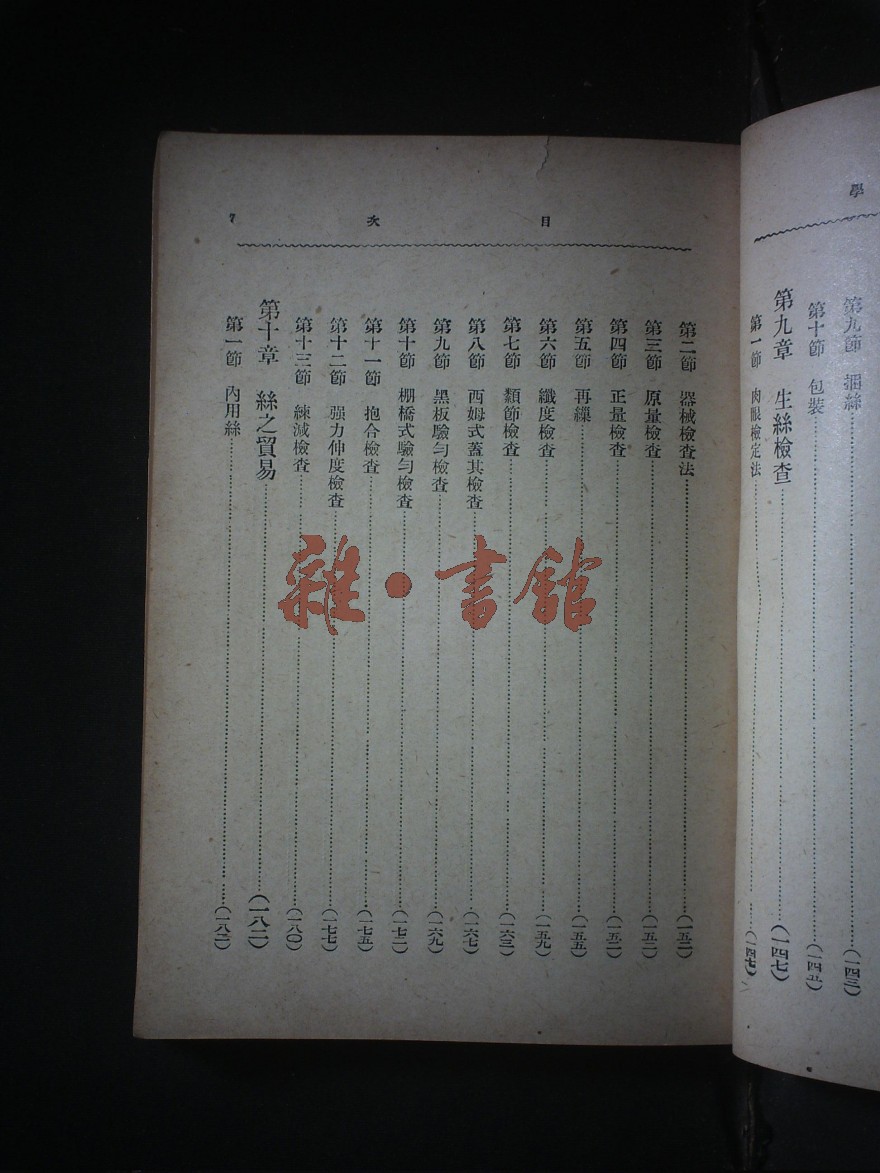 學
第九節 捆絲……(一四三)
第十節 包裝……(一四五)
第九章 生絲檢查……(一四七)
第一節 肉眼檢定法……(一四七)
目 次 7
第二節 器械檢查法……(一五二)
第三節 原量檢查……(一五二)
第四節 正量檢查……(一五二)
第五節 再繅……(一五五)
第六節 纖度檢查……(一五九)
第七節 類節檢查……(一六三)
第八節 西姆式蓋其檢查……(一六七)
第九節 黑板驗勻檢查……(一六九)
第十節 棚橋式驗勻檢查……(一七二)
第十一節 抱合檢查……(一七五)
第十二節 强力伸度檢查……(一七七)
第十三節 練減檢查……(一八〇)
第十章 絲之貿易……(一八二)
第一節 內用絲……(一八二)
雜·書館